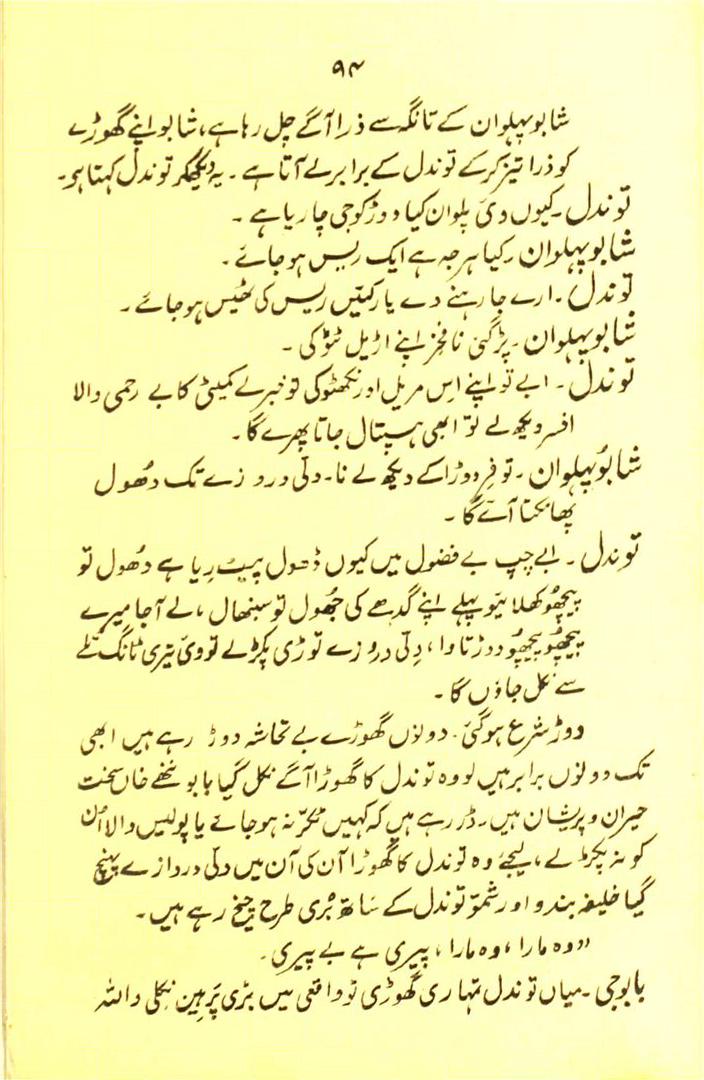 ۹۴
شابو پہلوان کے تانگہ سے ذرا آگے چل رہا ہے، شابو اپنے گھوڑے
کو ذرا تیز کرکے توندل کے برابر لے آتا ہے ۔ یہ دیکھکر توندل کہتا ہو۔
توندل ۔ کیوں دیٔ پلوان کیا دوڑ کو جی چا ریا ہے ۔
شابو پہلوان ۔ کیا ہرجہ ہے ایک ریس ہو جائے ۔
توندل ۔ ارے جا رہنے دے یار کہیں ریس کی ٹھیس ہو جائے ۔
شابو پہلوان ۔ پڑ گئی نا فخر اپنے اڑیل ٹٹو کی ۔
توندل ۔ ابے تو اپنے اس مریل اور نکھٹو کی تو خبر لے کمیٹی کا بے رحمی والا
افسر دیکھ لے تو ابھی ہسپتال جاتا پھرے گا ۔
شابو پہلوان ۔ تو فِر دوڑا کے دیکھ لے نا ۔ دلی دروازے تک دھُول
پھانکتا آئے گا ۔
توندل ۔ ابے چپ بے فضول میں کیوں ڈھول پیٹ رِیا ہے دھُول تو
پیچھُو کھلائیو پہلے اپنے گدھے کی جھُول تو سنبھال ، لے آجا میرے
پیچھُو پیچھُو دوڑتا وا ، دِلی دروزے توڑی پکڑ لے تو ویٔ تیری ٹانگ تلے
سے نکل جاؤں گا ۔
دوڑ شرع ہو گئی ۔ دونوں گھوڑے بے تحاشہ دوڑ رہے ہیں ابھی
تک دونوں برابر ہیں لو وہ توندل کا گھوڑا آگے نکل گیا بابو ننھے خاں سخت
حیران و پریشان ہیں ۔ ڈر رہے ہیں کہ کہیں ٹکر نہ ہو جائے یا پولیس والا اُن
کو نہ پکڑ لے ، لیجئے وہ توندل کا گھوڑا آن کی آن میں دلی دروازے پہنچ
گیا خلیفہ بندو اور شمّو توندل کے ساتھ بُری طرح چیخ رہے ہیں ۔
"وہ مارا ، وہ مارا ، پیری ہے بے پیری ۔
بابوجی ۔ میاں توندل تمہاری گھوڑی تو واقعی میں بڑی نکلی واللہ